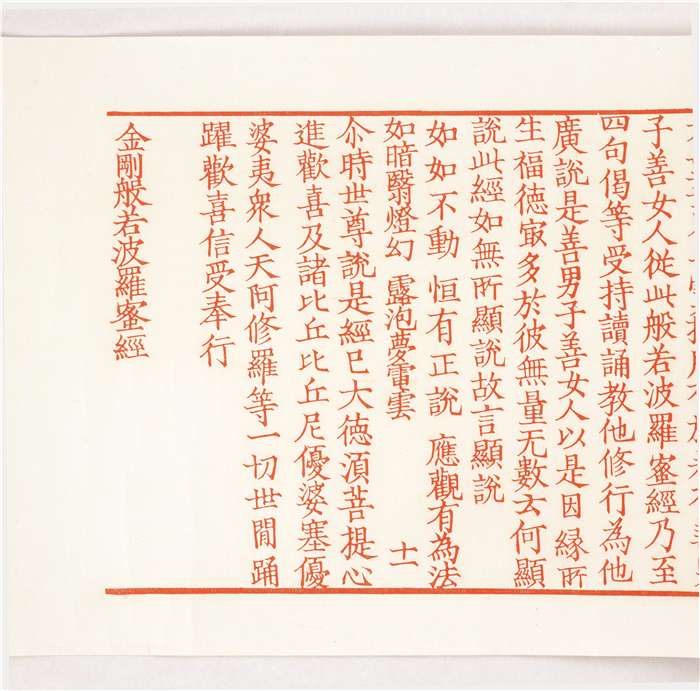 子善女人從此般若波羅蜜經乃至
四句偈等受持讀誦教他修行為他
廣說是善男子善女人以是因緣所
生福德㝡多於彼無量无数云何顯
說此經如無所顯說故言顯說
如如不動 恒有正說 應觀有為法
如暗翳燈幻 露泡夢電雲 十一
尒時世尊說是經已大德須菩提心
進歡喜及諸比丘比丘尼優婆塞優
婆夷衆人天阿修羅等一切世間踊
躍歡喜信受奉行
金剛般若波羅蜜經